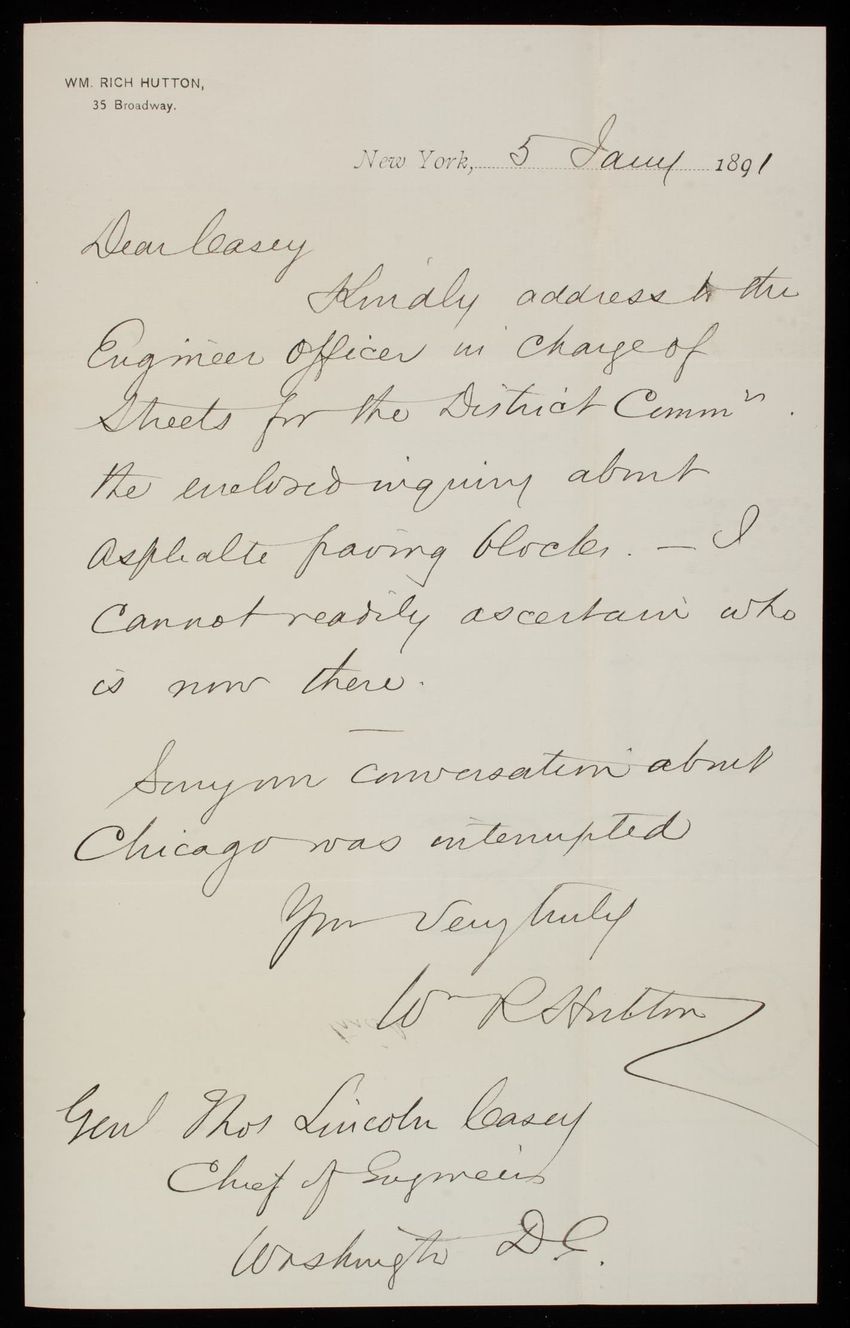 WM. RICH HUTTON,
35 Broadway.
New York, 5 Jany 1891
Dear Casey
Kindly address to the
Engineer Officer in charge of
Streets for the District Commrs.
the enclosed inquiry about
Asphalte paving blocks. — I
cannot readily ascertain who
is now there.
Sorry our conversation about
Chicago was interrupted
Your very truly
Wm R Hutton
Genl Thos Lincoln Casey
Chief of Engineers
Washington D.C.